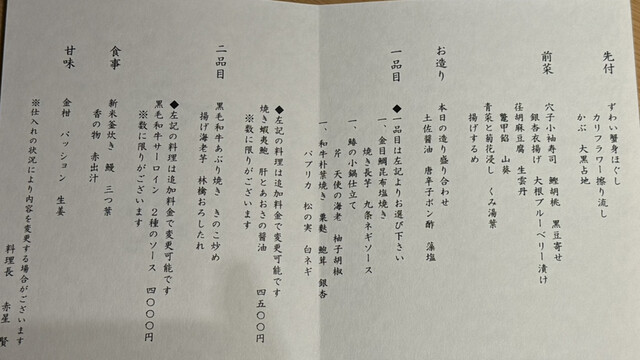 先付
ずわい蟹身ほぐし
カリフラワー擦り流し
かぶ 大黒占地
前菜
穴子小袖寿司 鰹胡桃 黒豆寄せ
銀杏衣揚げ 大根ブルーベリー漬け
荏胡麻豆腐 生雲丹
鼈甲餡 山葵
青菜と菊花浸し くみ湯葉
揚げするめ
お造り
本日の造り盛り合わせ
土佐醤油 唐辛子ポン酢 藻塩
一品目
◆一品目は左記よりお選び下さい
一、金目鯛昆布塩焼き
焼き長芋 九条ネギソース
一、鰆の小鍋仕立て
芹 天使の海老 柚子胡椒
一、和牛朴葉焼き 粟麩 鮑茸 銀杏
パプリカ 松の実 白ネギ
◆左記の料理は追加料金で変更可能です
焼き蝦夷鮑 肝とあおさの醤油 四五〇〇円
※数に限りがございます
二品目
黒毛和牛あぶり焼き きのこ炒め
揚げ海老芋 林檎おろしたれ
◆左記の料理は追加料金で変更可能です
黒毛和牛サーロイン 2種のソース 四〇〇〇円
※数に限りがございます
食事
新米釜炊き 鰻 三つ葉
香の物 赤出汁
甘味
金柑 パッション 生姜
※仕入れの状況により内容を変更する場合がございます
料理長 赤星 賢